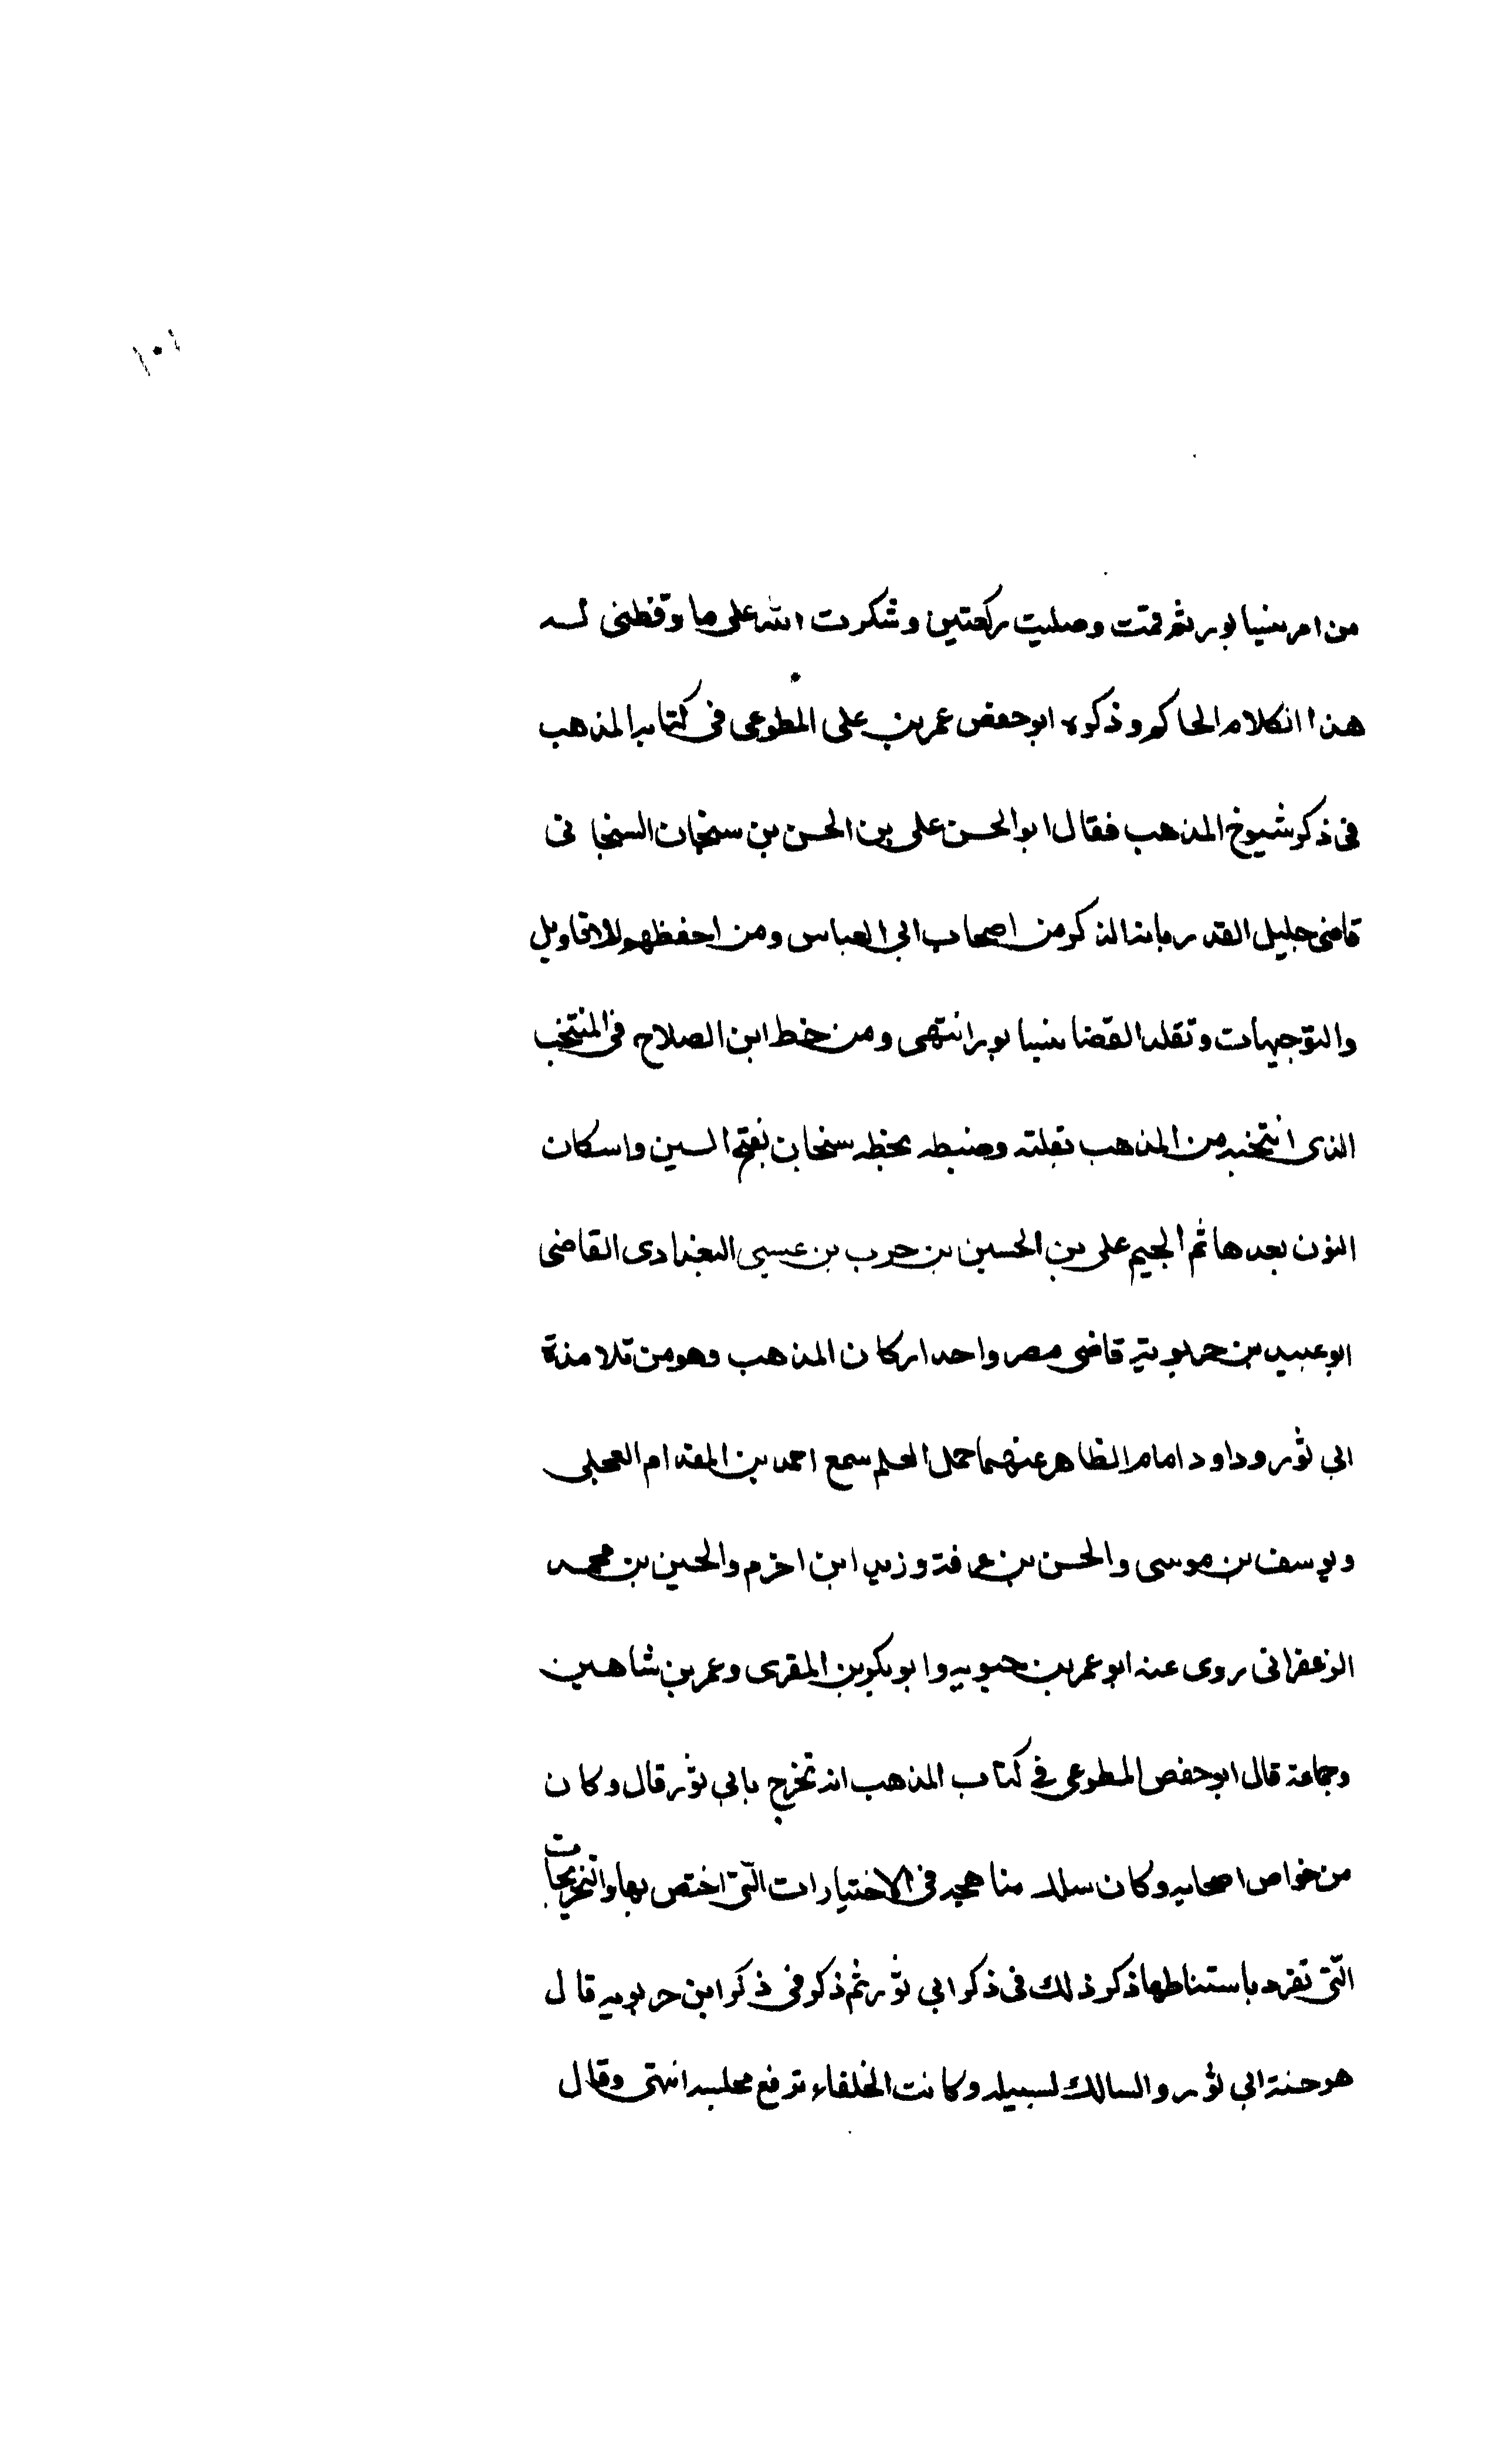 ١٠١
من امر بنيسابور ثم قمت وصليت ركعتين وشكرت الله على ما وفظنى له
هذا انكلام الحاكم وذكره ابو حفص عمر بن على المطوعى فى كتابه المذهب
فى ذكر شيوخ المذهب فقال ابو الحسن على بن الحسن بن سنجان السنجانى
قاضى جليل القدر بابه الذكر من اصحاب ابى العباس ومن احفظهم للاقاويل
والتوجيهات وتقلد القضا بنيسابور انتهى ومن خط ابن الصلاح فى المنتخب
الذى انتخبه من المذهب نقلته وضبطه بخطه سنجان بفتح السين واسكان
النون بعدها ثم الجيم على بن الحسين بن حرب بن عيسى البغدادى القاضى
ابو عبيد بن حربويه قاضى مصر واحد اركان المذهب وهو من تلامذة
ابى ثور وداود امام الظاهر عنهما حمل العلم سمع احمد بن المقدام العجلى
ويوسف بن موسى والحسن بن عرفة وزيد ابن اخزم والحسين بن محمد
الزعفرانى روى عنه ابو عمر بن حيويه وابو بكر بن المقرى وعمر بن شاهين
وجماعة قال ابو حفص المطوعى فى كتاب المذهب انه تخرج بابى ثور قال وكان
من خواص اصحابه وكان سلك مناهجه فى الاختيارات التى اختص بها والتخريجات
التى تفرد باستنباطها ذكر ذلك فى ذكر ابى ثور ثم ذكر فى ذكر ابن حربويه قال
هو حسنة ابى ثور والسالك لسبيله وكانت الخلفاء ترفع مجلسه انتهى وقال